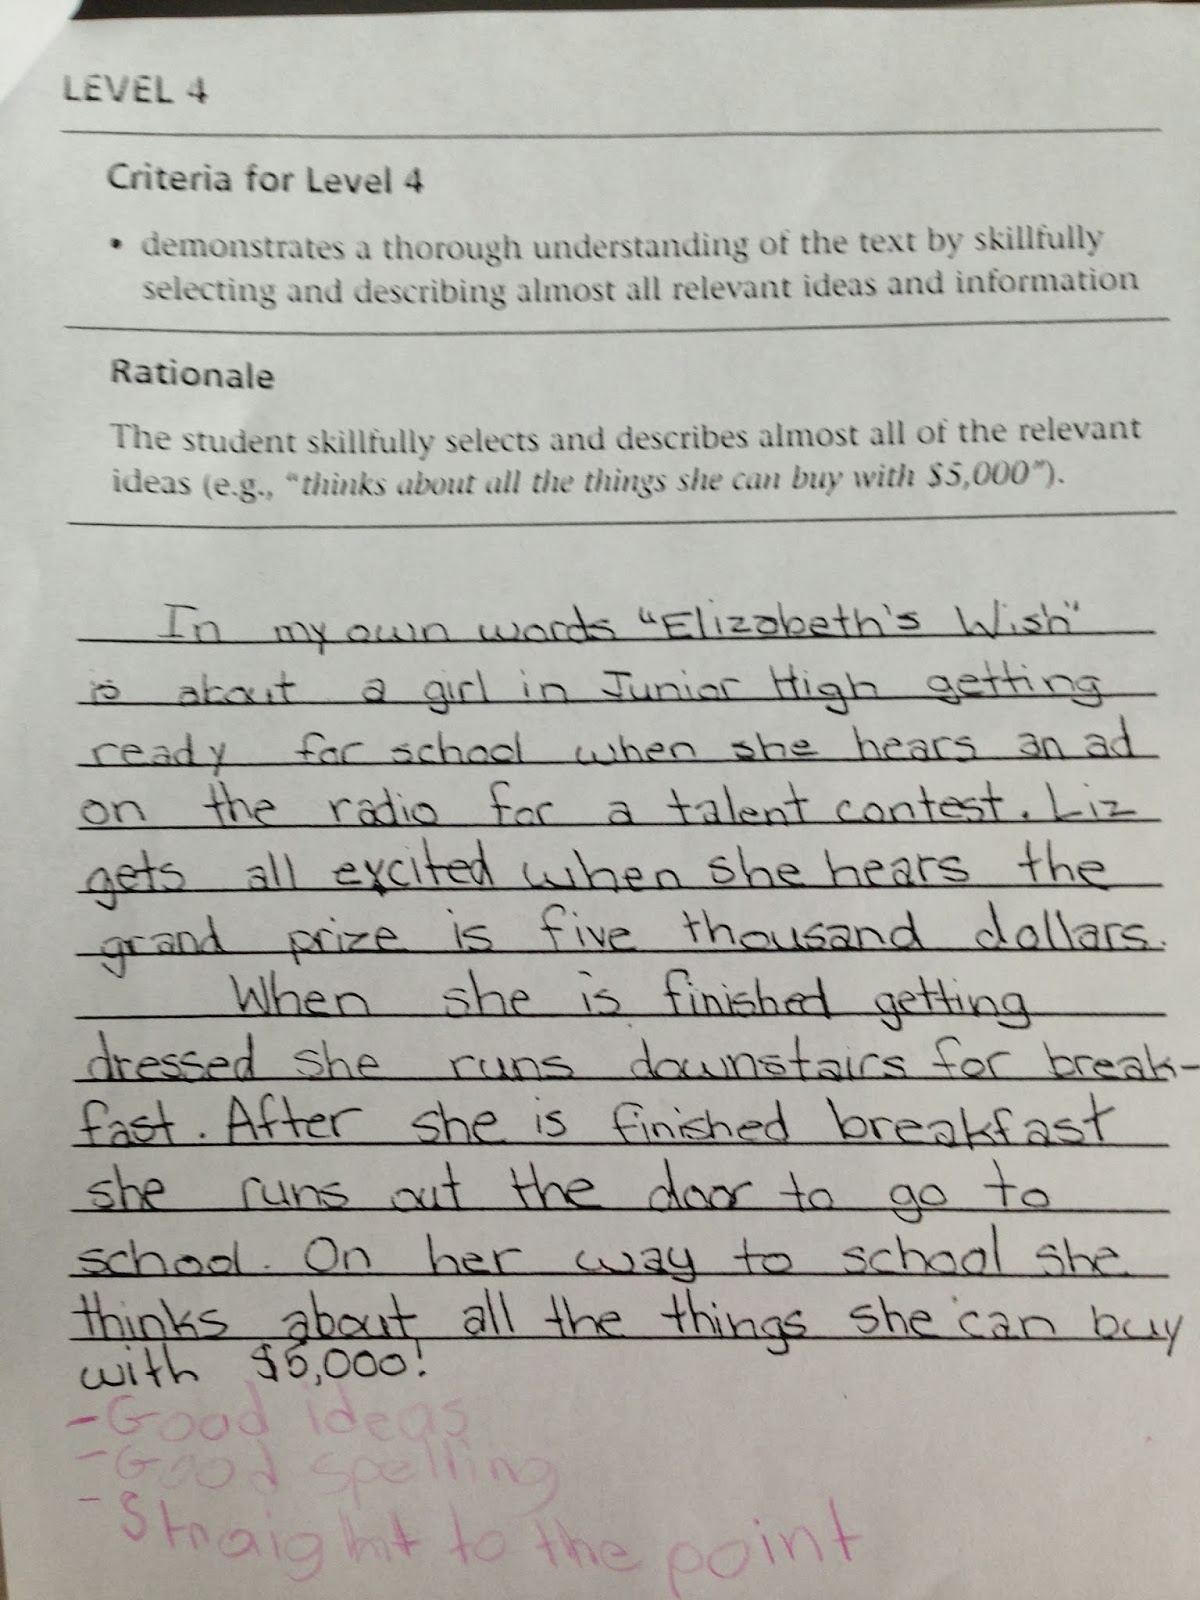 LEVEL 4
Criteria for Level 4
• demonstrates a thorough understanding of the text by skillfully
selecting and describing almost all relevant ideas and information
Rationale
The student skillfully selects and describes almost all of the relevant
ideas (e.g., "thinks about all the things she can buy with $5,000").
In my own words "Elizabeth's Wish"
is about a girl in Junior High getting
ready for school when she hears an ad
on the radio for a talent contest. Liz
gets all excited when she hears the
grand prize is five thousand dollars.
When she is finished getting
dressed she runs downstairs for break-
fast. After she is finished breakfast
she runs out the door to go to
school. On her way to school she
thinks about all the things she can buy
with $5,000!
- Good ideas
- Good spelling
- Straight to the point